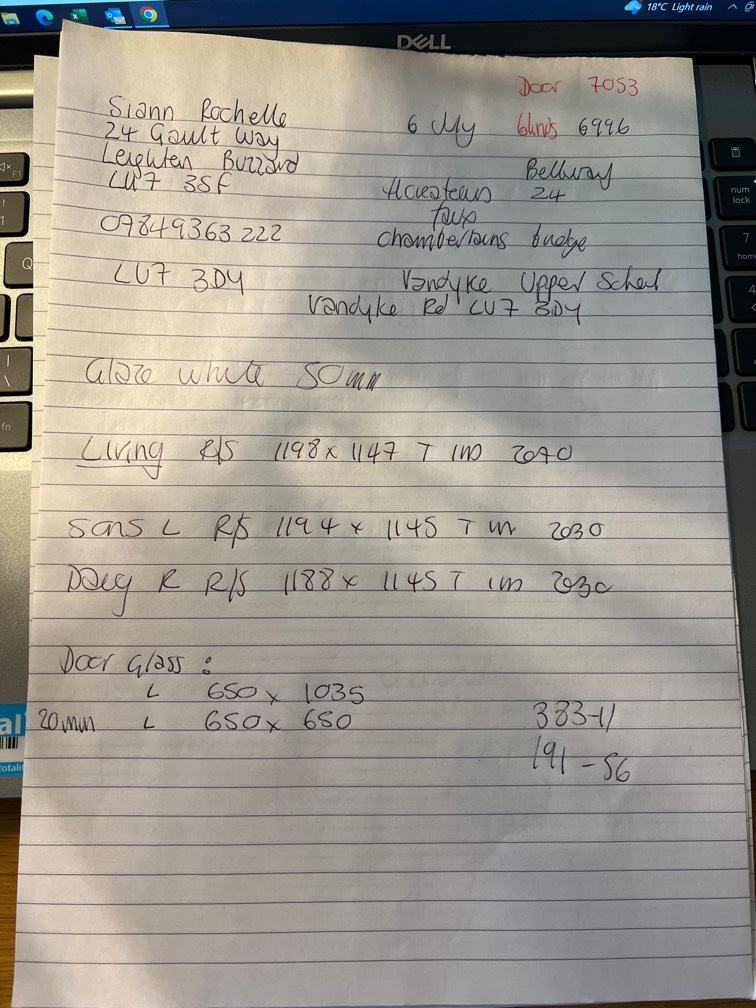 18°C Light rain
DELL
Door 7053
Siann Rochelle
6 blinds 6996
24 Gault Way
Leighten Buzzard
Bellway
LU7 3SF
24
Faux
07849363222
chamberlains
LU7 3DY
Vandyke Upper School
Vandyke Rd LU7 3DY
white 50mm
Living R/S 1198 x 1147 T 2070
L R/S 1194 x 1145 T 2030
R R/S 1188 x 1145 T 2030
Door Glass :
L 650 x 1035
20mm L 650 x 650
383-11
191-56
F1
fn
num
lock
7
home
4
al
totali